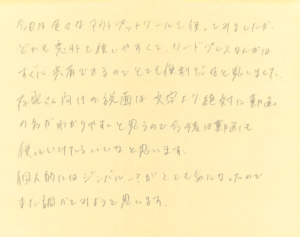 今日は色々なアウトプットツールを使ってみましたが、
どれも意外と使いやすくて、ワードプレスなんかは
すぐに共有できるのでとても便利だなと思いました。
お客さん向けの説明は文字より絶対に動画
の方がわかりやすいと思うので今後は動画も
使っていけたらいいなと思います。
個人的にはジンバルーアがとても気になったので
また調べてみようと思います。